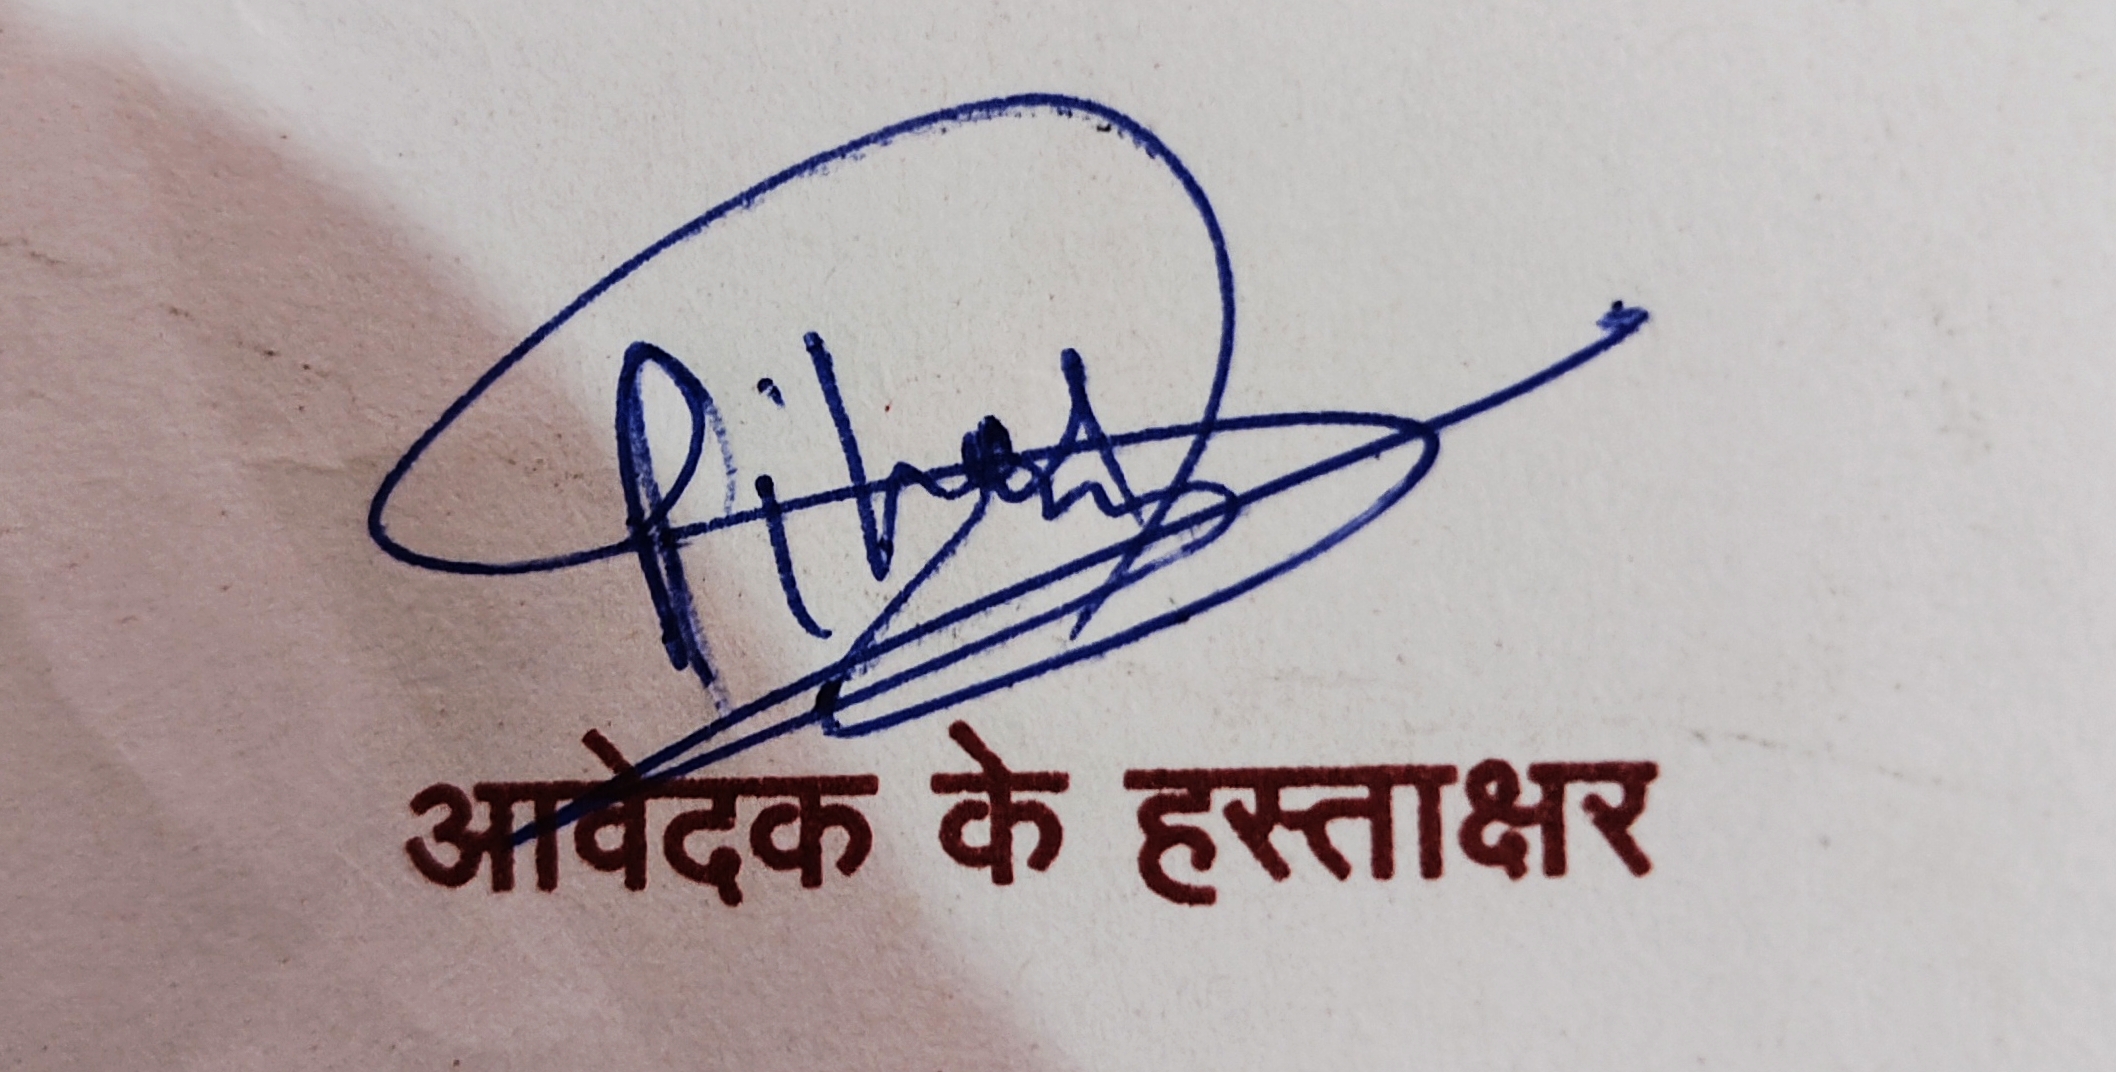 आवेदक के हस्ताक्षर